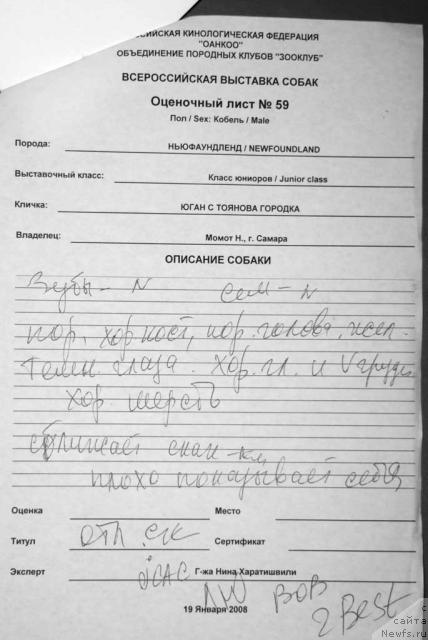 РОССИЙСКАЯ КИНОЛОГИЧЕСКАЯ ФЕДЕРАЦИЯ
"ОАНКОО"
ОБЪЕДИНЕНИЕ ПОРОДНЫХ КЛУБОВ "ЗООКЛУБ"
ВСЕРОССИЙСКАЯ ВЫСТАВКА СОБАК
Оценочный лист № 59
Пол / Sex: Кобель / Male
Порода: НЬЮФАУНДЛЕНД / NEWFOUNDLAND
Выставочный класс: Класс юниоров / Junior class
Кличка: ЮГАН С ТОЯНОВА ГОРОДКА
Владелец: Момот Н., г. Самара
ОПИСАНИЕ СОБАКИ
Зубы - N сем - N
пор, хор кост, пор. голова, жел.
темн. глаза. Хор. гл. и V груди
хор. шерсть
сближает скак-км
плохо показывает себя
Оценка Место
Титул отл. СК Сертификат
Эксперт Г-жа Нина Харатишвили
JCAC ЛЮ BOB
19 Января 2008 2 Best
с
сайта
Newfs.ru